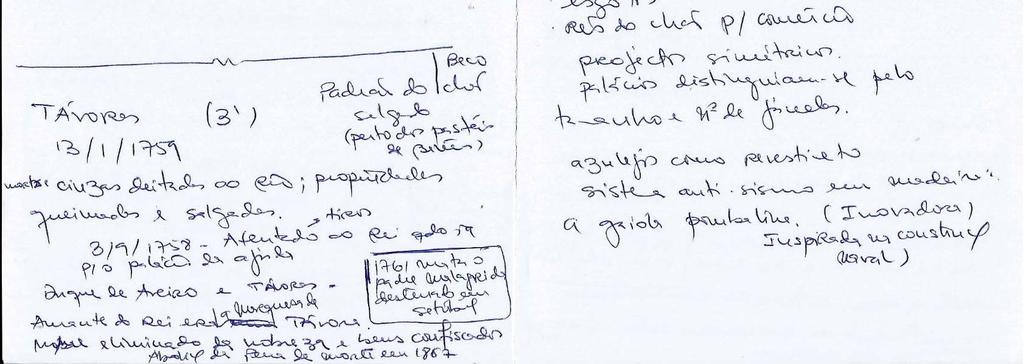 Beco
Padrão do chão
salgado
(perto dos pastéis
de Belém)
TÁVORAS (3')
13/1/1759
mortos cinzas deitadas ao rio; propriedades
queimadas e salgadas.
tiros
3/9/1758 - Atentado ao Rei qdo ia
p/ o palácio da ajuda
Duque de Aveiro e TÁVORAS -
1761 mata o
padre Malagrida
desterrado em
Setúbal
a Marquesa de
Amante do Rei era TÁVORA.
eliminado da nobreza e bens confiscados
Abolição da Pena de morte em 1867
rés do chão p/ comércio
projectos simétricos.
palácios distinguiam-se pelo
tamanho e nº de janelas.
azulejos como revestimento
sistema anti-sismo em madeira:
a gaiola pombalina. (Inovadora)
Inspirada na construção
naval)